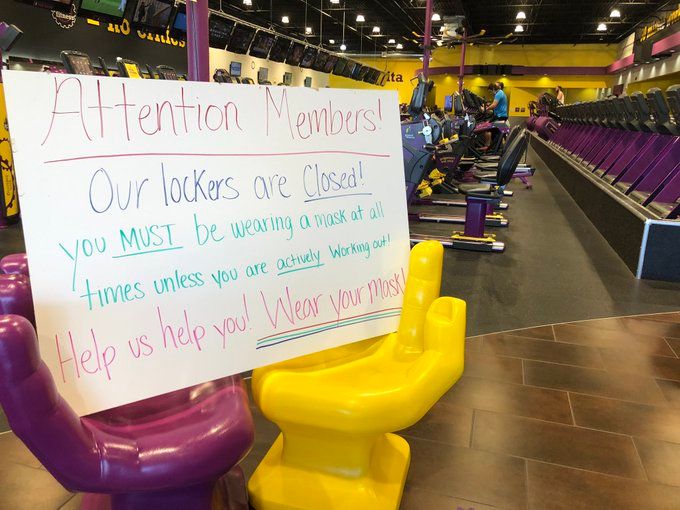 Attention Members!
Our lockers are Closed!
you MUST be wearing a mask at all
times unless you are actively working out!
Help us help you! Wear your mask!